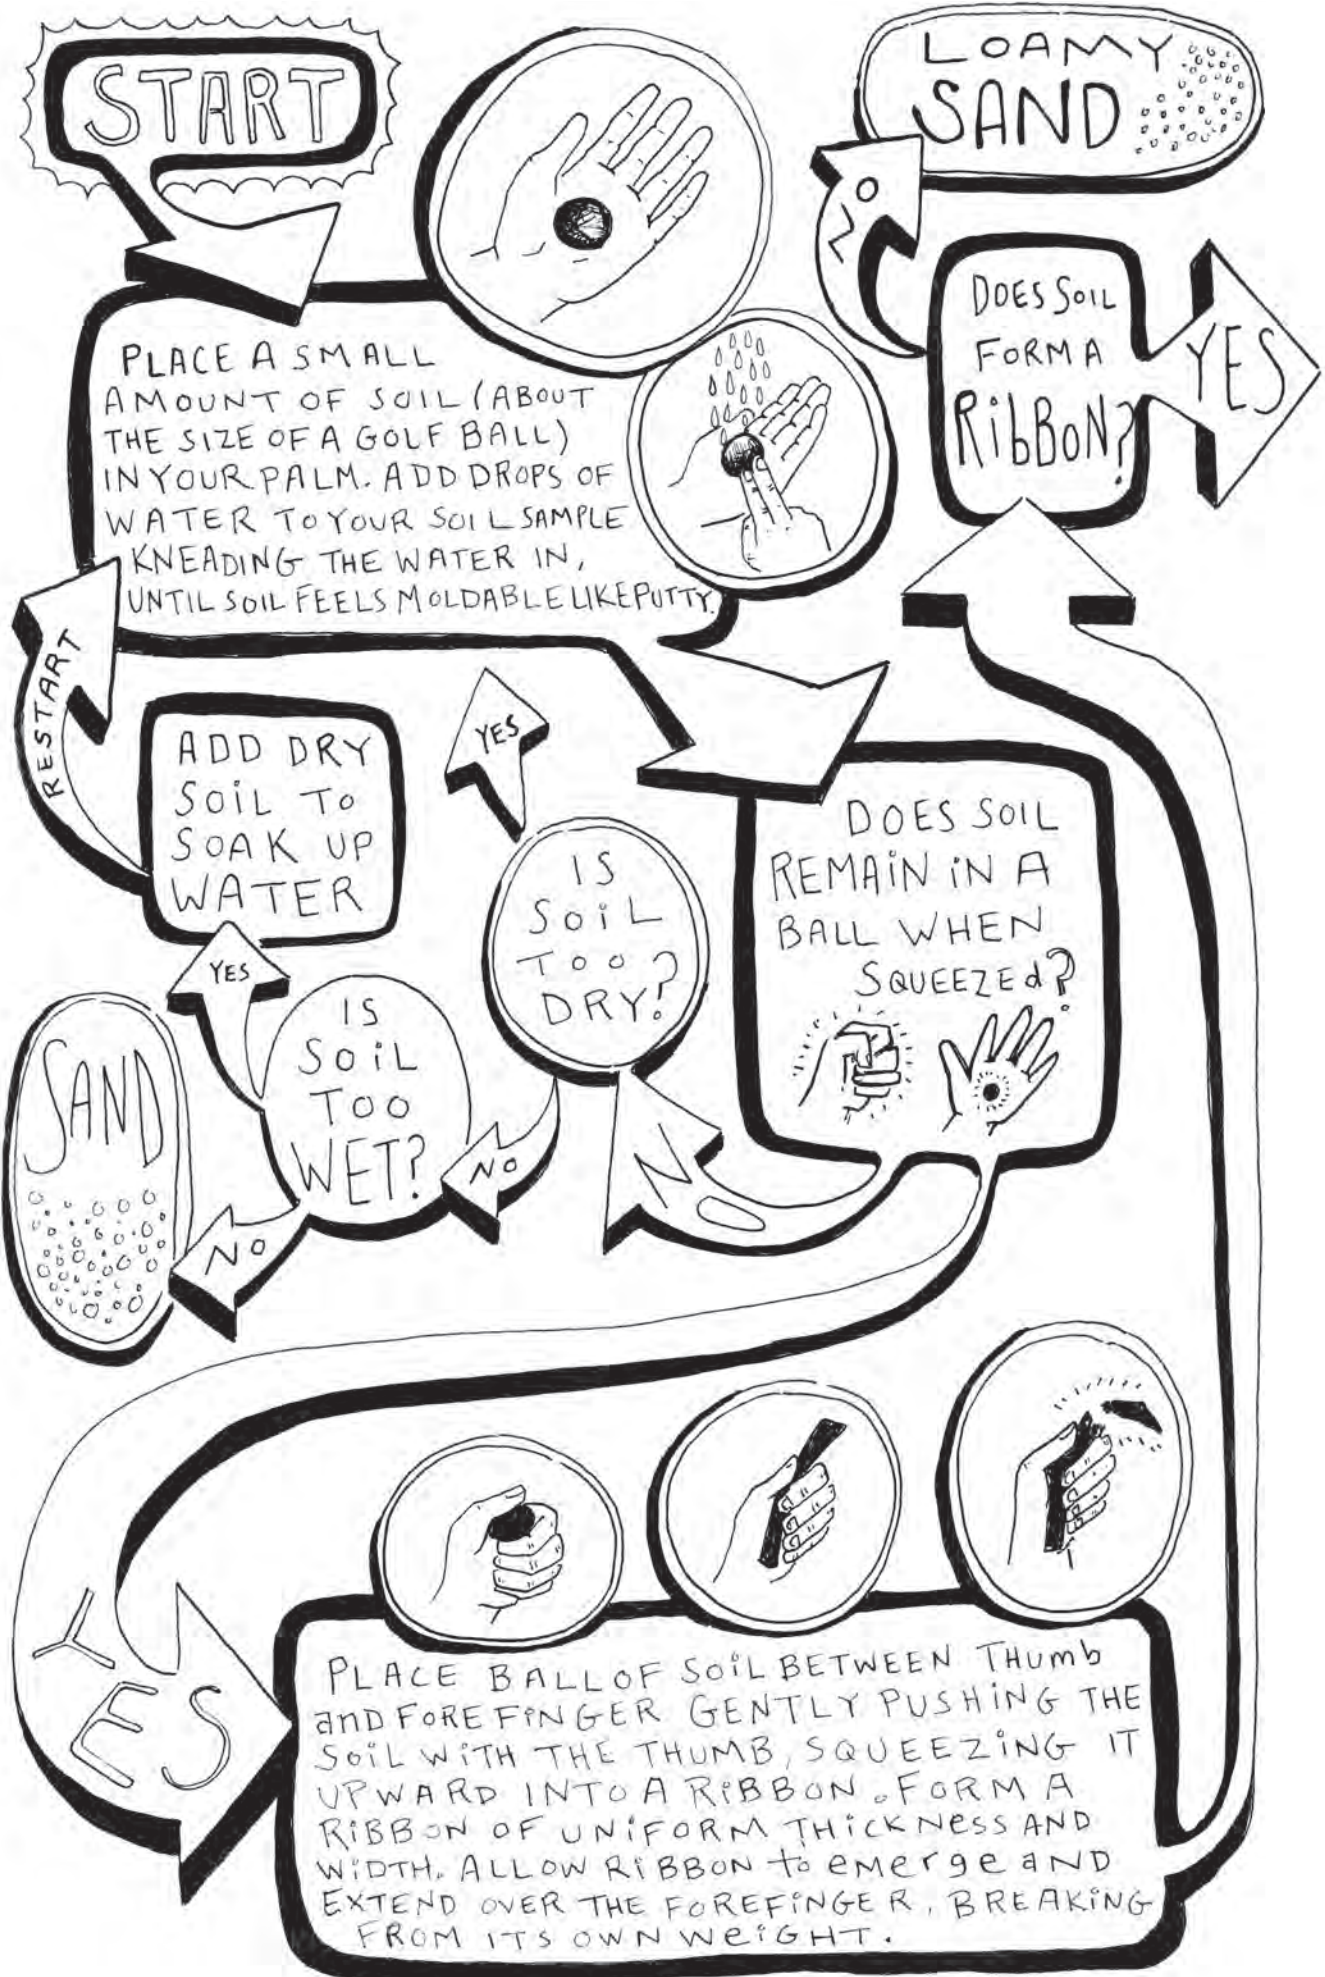 START
PLACE A SMALL
AMOUNT OF SOIL (ABOUT
THE SIZE OF A GOLF BALL)
IN YOUR PALM. ADD DROPS OF
WATER TO YOUR SOIL SAMPLE
KNEADING THE WATER IN,
UNTIL SOIL FEELS MOLDABLE LIKE PUTTY.
DOES SOIL
REMAIN IN A
BALL WHEN
SQUEEZEd?
NO
IS
SOIL
TOO
DRY?
YES
NO
IS
SOIL
TOO
WET?
YES
ADD DRY
SOIL TO
SOAK UP
WATER
RESTART
NO
SAND
YES
PLACE BALL OF SOIL BETWEEN THUMb
anD FOREFINGER GENTLY PUSHING THE
SOIL WITH THE THUMB, SQUEEZING IT
UPWARD INTO A RIBBON. FORM A
RIBBON OF UNIFORM THICKNeSS AND
WIDTH. ALLOW RIBBON to eMerge aND
EXTEND OVER THE FOREFINGER, BREAKING
FROM ITS OWN WeIGHT.
DOES SOIL
FORM A
RIbBON?
NO
LOAMY
SAND
YES